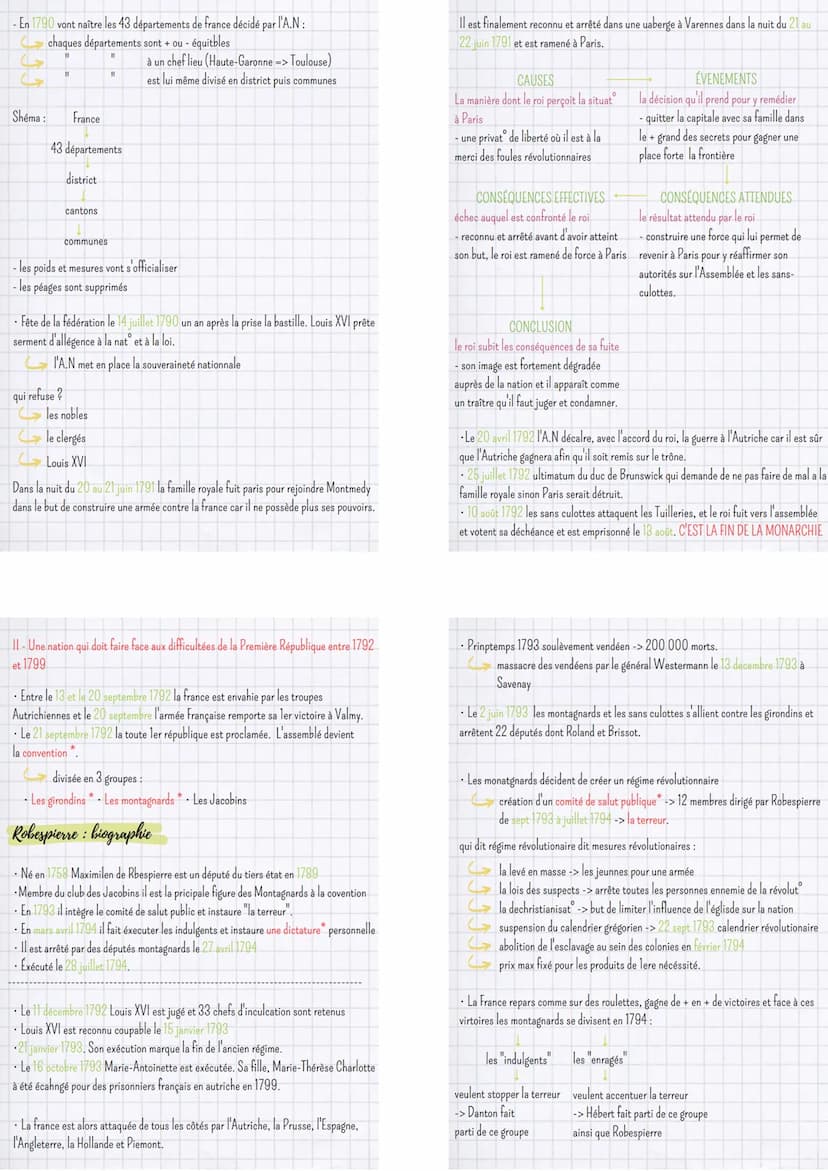 - En 1790 vont naître les 43 départements de france décidé par l'A.N :
chaques départements sont + ou - équitbles
" " à un chef lieu (Haute-Garonne => Toulouse)
" " est lui même divisé en district puis communes
Shéma : France
43 départements
district
cantons
communes
- les poids et mesures vont s'officialiser
- les péages sont supprimés
· Fête de la fédération le 14 juillet 1790 un an après la prise la bastille. Louis XVI prête
serment d'allégence à la nat° et à la loi.
l'A.N met en place la souveraineté nationale
qui refuse ?
les nobles
le clergés
Louis XVI
Dans la nuit du 20 au 21 juin 1791 la famille royale fuit paris pour rejoindre Montmedy
dans le but de construire une armée contre la france car il ne possède plus ses pouvoirs.
Il est finalement reconnu et arrêté dans une uaberge à Varennes dans la nuit du 21 au
22 juin 1791 et est ramené à Paris.
CAUSES
La manière dont le roi perçoit la situat°
à Paris
- une privat° de liberté où il est à la
merci des foules révolutionnaires
ÉVENEMENTS
la décision qu'il prend pour y remédier
- quitter la capitale avec sa famille dans
le + grand des secrets pour gagner une
place forte la frontière
CONSÉQUENCES EFFECTIVES
échec auquel est confronté le roi
- reconnu et arrêté avant d'avoir atteint
son but, le roi est ramené de force à Paris
CONSÉQUENCES ATTENDUES
le résultat attendu par le roi
- construire une force qui lui permet de
revenir à Paris pour y réaffirmer son
autorités sur l'Assemblée et les sans-
culottes.
CONCLUSION
le roi subit les conséquences de sa fuite
- son image est fortement dégradée
auprès de la nation et il apparaît comme
un traître qu'il faut juger et condamner.
·Le 20 avril 1792 l'A.N décalre, avec l'accord du roi, la guerre à l'Autriche car il est sûr
que l'Autriche gagnera afin qu'il soit remis sur le trône.
· 25 juillet 1792 ultimatum du duc de Brunswick qui demande de ne pas faire de mal a la
famille royale sinon Paris serait détruit.
· 10 août 1792 les sans culottes attaquent les Tuilleries, et le roi fuit vers l'assemblée
et votent sa déchéance et est emprisonné le 13 août. C'EST LA FIN DE LA MONARCHIE
II - Une nation qui doit faire face aux difficultées de la Première République entre 1792
et 1799
· Entre le 13 et le 20 septembre 1792 la france est envahie par les troupes
Autrichiennes et le 20 septembre l'armée Française remporte sa 1er victoire à Valmy.
· Le 21 septembre 1792 la toute 1er république est proclamée. L'assemblé devient
la convention *.
divisée en 3 groupes :
· Les girondins * · Les montagnards * · Les Jacobins
Robespierre : biographie
· Né en 1758 Maximilen de Rbespierre est un député du tiers état en 1789
·Membre du club des Jacobins il est la pricipale figure des Montagnards à la covention
· En 1793 il intègre le comité de salut public et instaure "la terreur".
· En mars avril 1794 il fait éxecuter les indulgents et instaure une dictature* personnelle
· Il est arrêté par des députés montagnards le 27 avril 1794
· Éxécuté le 28 juillet 1794.
· Le 11 décembre 1792 Louis XVI est jugé et 33 chefs d'inculcation sont retenus
· Louis XVI est reconnu coupable le 15 janvier 1793
·21 janvier 1793. Son exécution marque la fin de l'ancien régime.
· Le 16 octobre 1793 Marie-Antoinette est exécutée. Sa fille, Marie-Thérèse Charlotte
à été écahngé pour des prisonniers français en autriche en 1799.
· La france est alors attaquée de tous les côtés par l'Autriche, la Prusse, l'Espagne,
l'Angleterre, la Hollande et Piemont.
· Prinptemps 1793 soulèvement vendéen -> 200 000 morts.
massacre des vendéens par le général Westermann le 13 decembre 1793 à
Savenay
· Le 2 juin 1793 les montagnards et les sans culottes s'allient contre les girondins et
arrêtent 22 députés dont Roland et Brissot.
· Les monatgnards décident de créer un régime révolutionnaire
création d'un comité de salut publique* -> 12 membres dirigé par Robespierre
de sept 1793 à juillet 1794 -> la terreur.
qui dit régime révolutionaire dit mesures révolutionaires :
la levé en masse -> les jeunnes pour une armée
la lois des suspects -> arrête toutes les personnes ennemie de la révolut°
la dechristianisat° -> but de limiter l'influence de l'églisde sur la nation
suspension du calendrier grégorien -> 22 sept 1793 calendrier révolutionaire
abolition de l'esclavage au sein des colonies en février 1794
prix max fixé pour les produits de 1ere nécéssité.
· La France repars comme sur des roulettes, gagne de + en + de victoires et face à ces
virtoires les montagnards se divisent en 1794 :
les "indulgents" les "enragés"
veulent stopper la terreur
-> Danton fait
parti de ce groupe
veulent accentuer la terreur
-> Hébert fait parti de ce groupe
ainsi que Robespierre